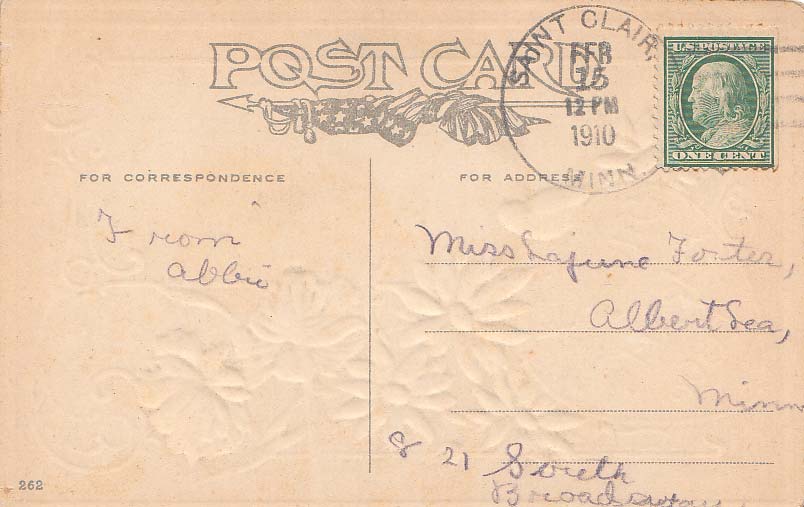 POST CARD
SAINT CLAIR,
FEB
15
12 PM
1910
MINN.
U.S. POSTAGE
ONE CENT
FOR CORRESPONDENCE
FOR ADDRESS
From
Abbie
Miss Lajune Forter,
Albert Lea,
Minn
821 South
Broadway
262